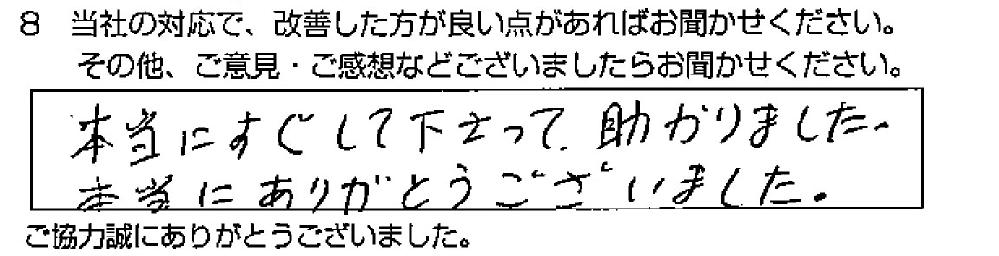 8 当社の対応で、改善した方が良い点があればお聞かせください。
その他、ご意見・ご感想などございましたらお聞かせください。
本当にすぐして下さって、助かりました。
本当にありがとうございました。
ご協力誠にありがとうございました。